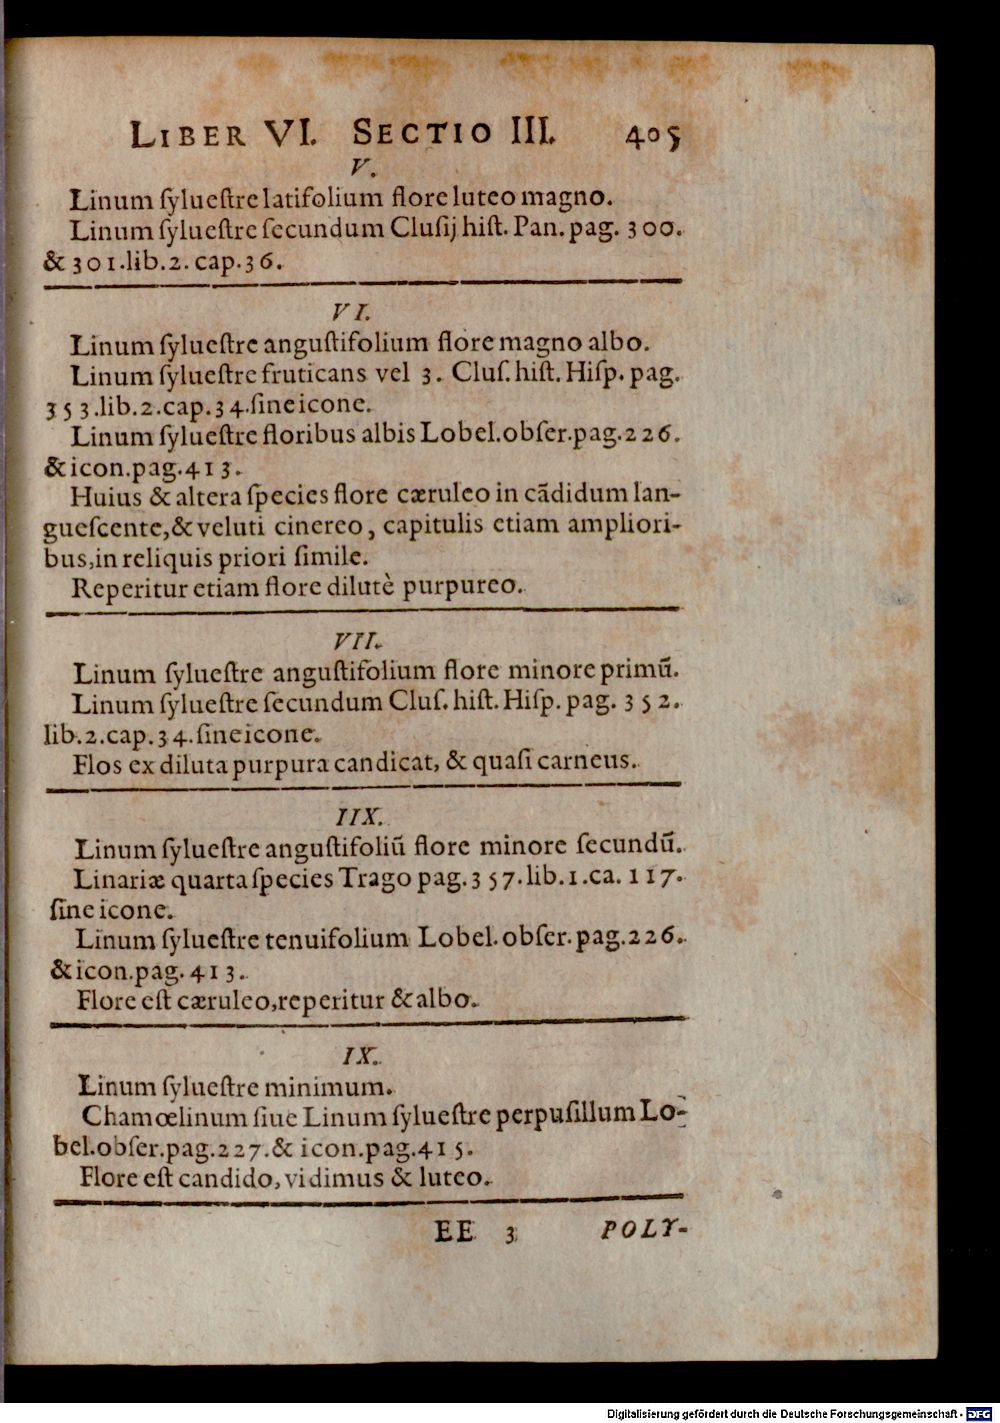 LIBER VI. SECTIO III. 405
V.
Linum ſylueſtre latifolium flore luteo magno.
Linum ſylueſtre ſecundum Cluſij hiſt. Pan. pag. 300.
& 301. lib. 2. cap. 36.
VI.
Linum ſylueſtre anguſtifolium flore magno albo.
Linum ſylueſtre fruticans vel 3. Cluſ. hiſt. Hiſp. pag.
353. lib. 2. cap. 34. ſine icone.
Linum ſylueſtre floribus albis Lobel. obſer. pag. 226.
& icon. pag. 413.
Huius & altera ſpecies flore cæruleo in cãdidum lan-
gueſcente, & veluti cinereo, capitulis etiam ampliori-
bus, in reliquis priori ſimile.
Reperitur etiam flore dilutè purpureo.
VII.
Linum ſylueſtre anguſtifolium flore minore primũ.
Linum ſylueſtre ſecundum Cluſ. hiſt. Hiſp. pag. 352.
lib. 2. cap. 34. ſine icone.
Flos ex diluta purpura candicat, & quaſi carneus.
IIX.
Linum ſylueſtre anguſtifoliũ flore minore ſecundũ.
Linariæ quarta ſpecies Trago pag. 357. lib. 1. ca. 117.
ſine icone.
Linum ſylueſtre tenuifolium Lobel. obſer. pag. 226.
& icon. pag. 413.
Flore eſt cæruleo, reperitur & albo.
IX.
Linum ſylueſtre minimum.
Chamœlinum ſiue Linum ſylueſtre perpuſillum Lo-
bel. obſer. pag. 227. & icon. pag. 415.
Flore eſt candido, vidimus & luteo.
EE 3 POLY-
Digitalisierung gefördert durch die Deutsche Forschungsgemeinschaft - DFG